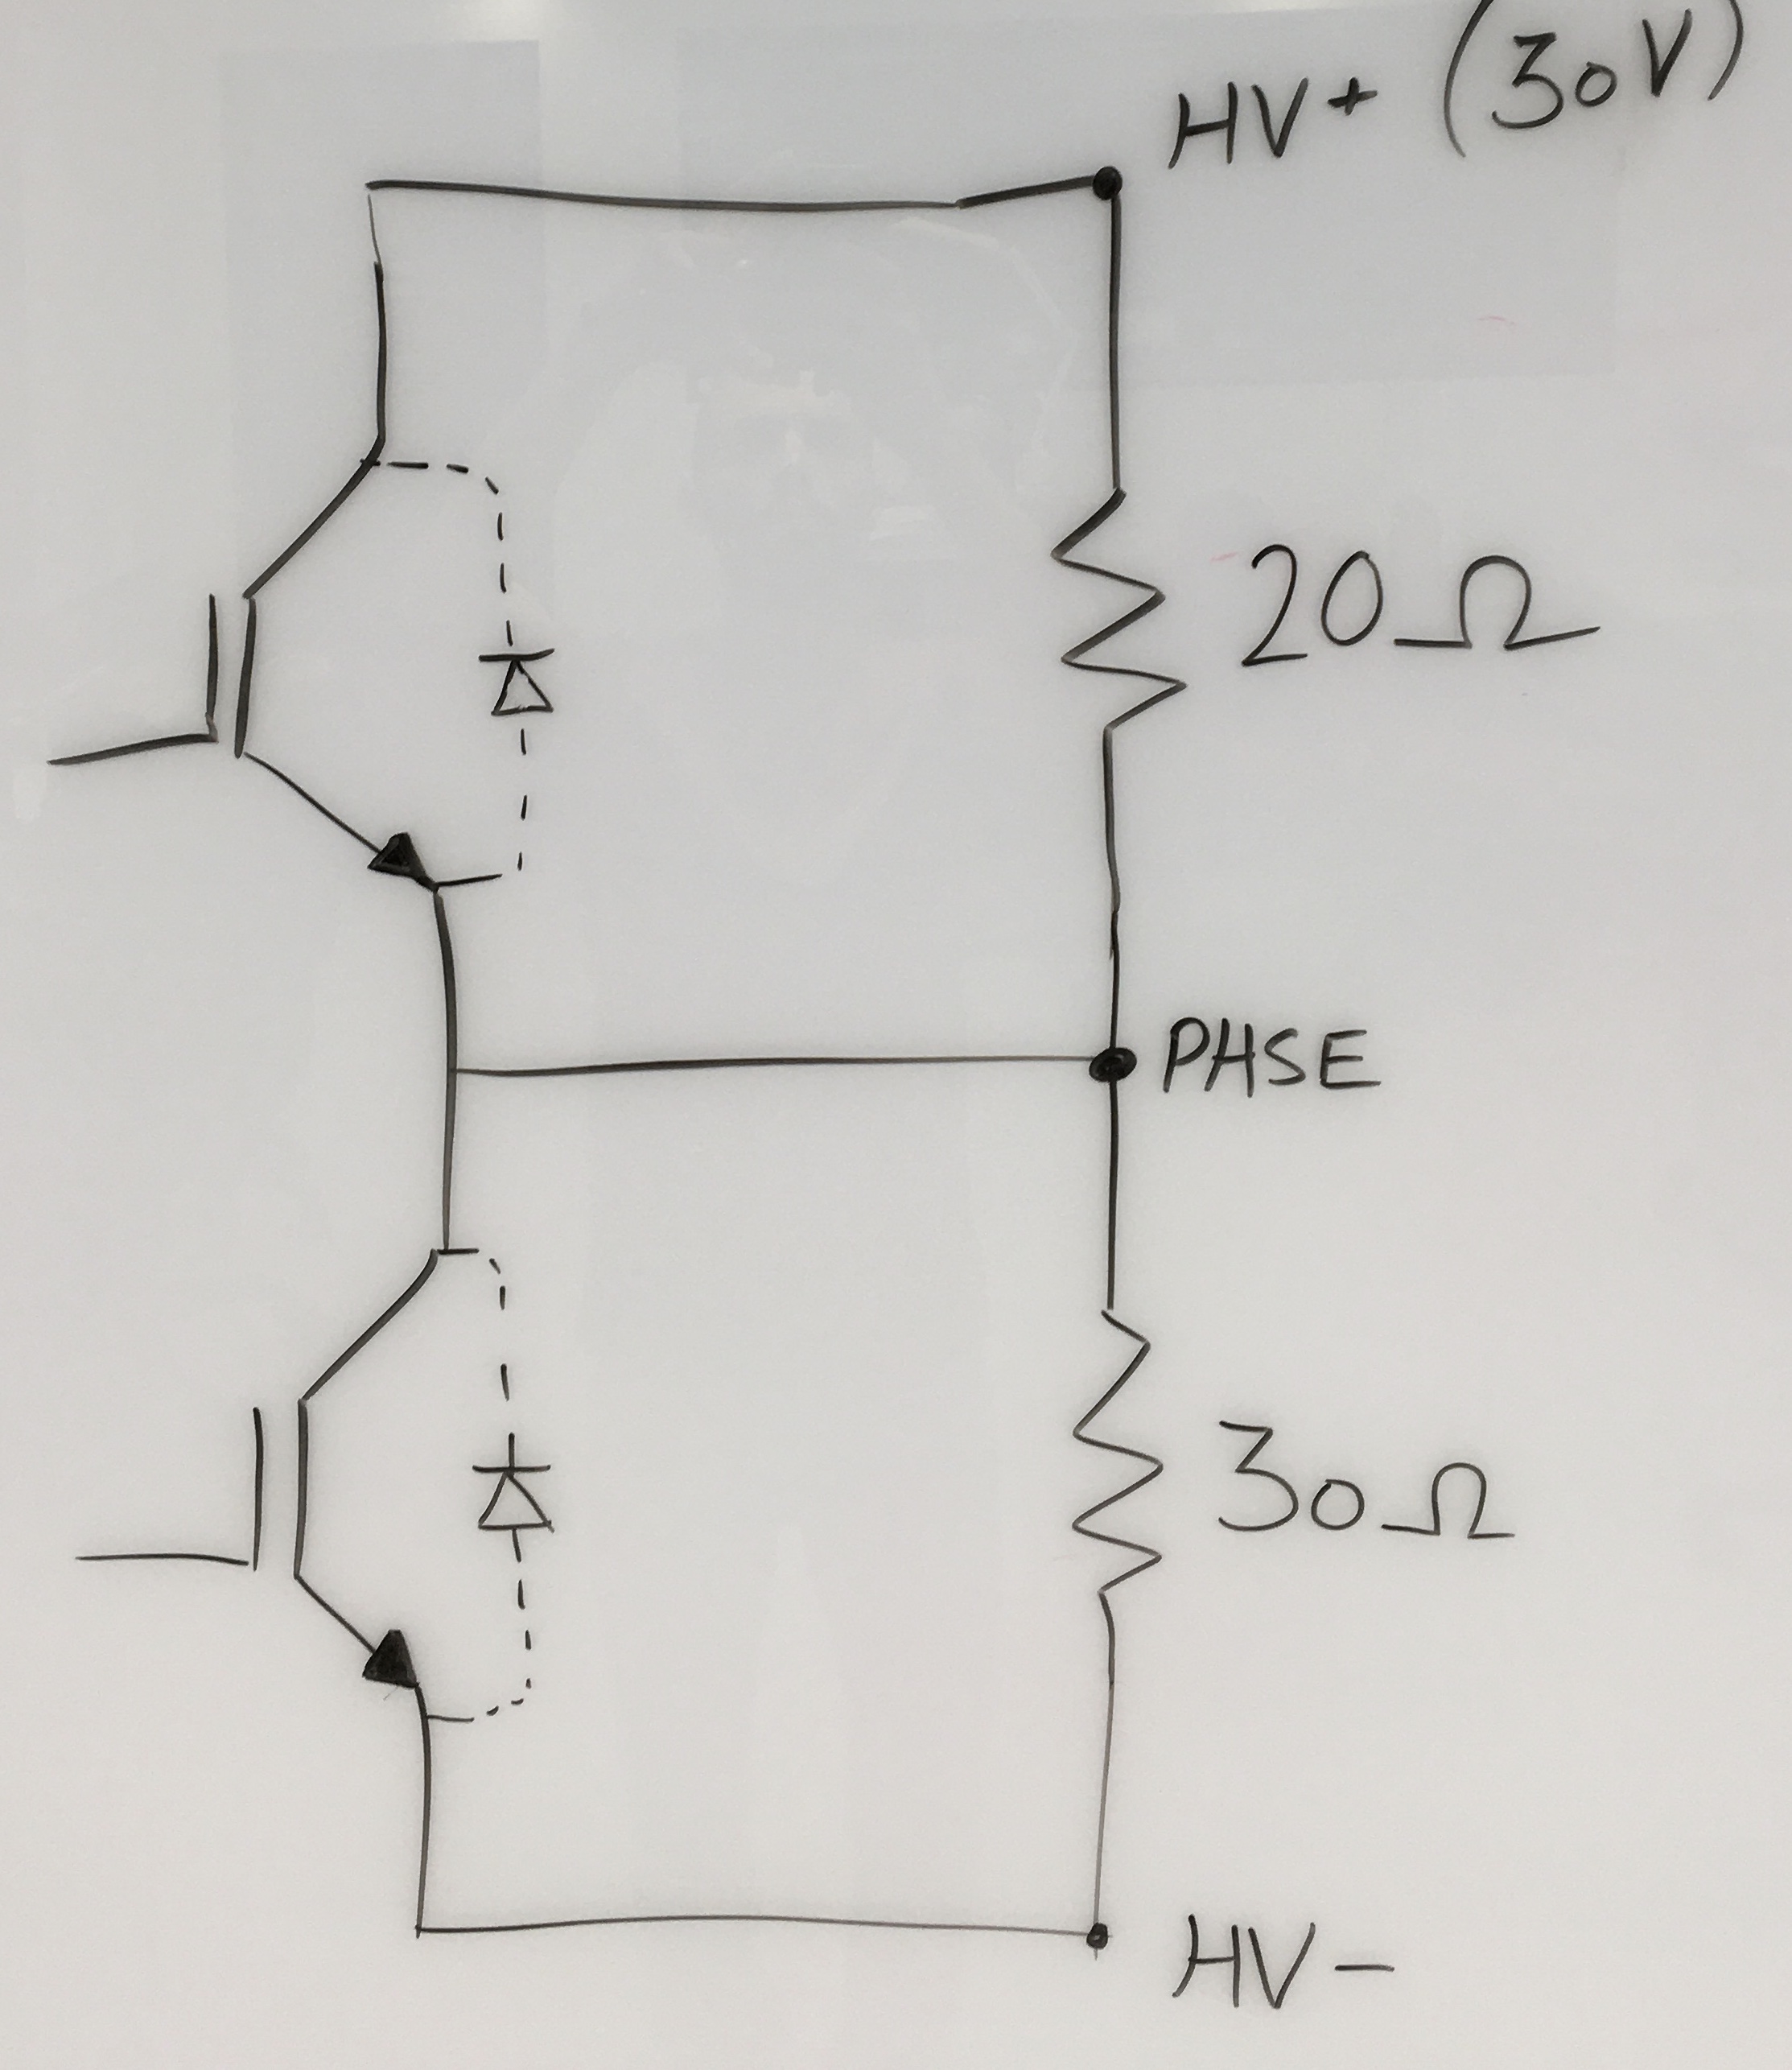 HV+ (30V)
20Ω
PHSE
30Ω
HV-